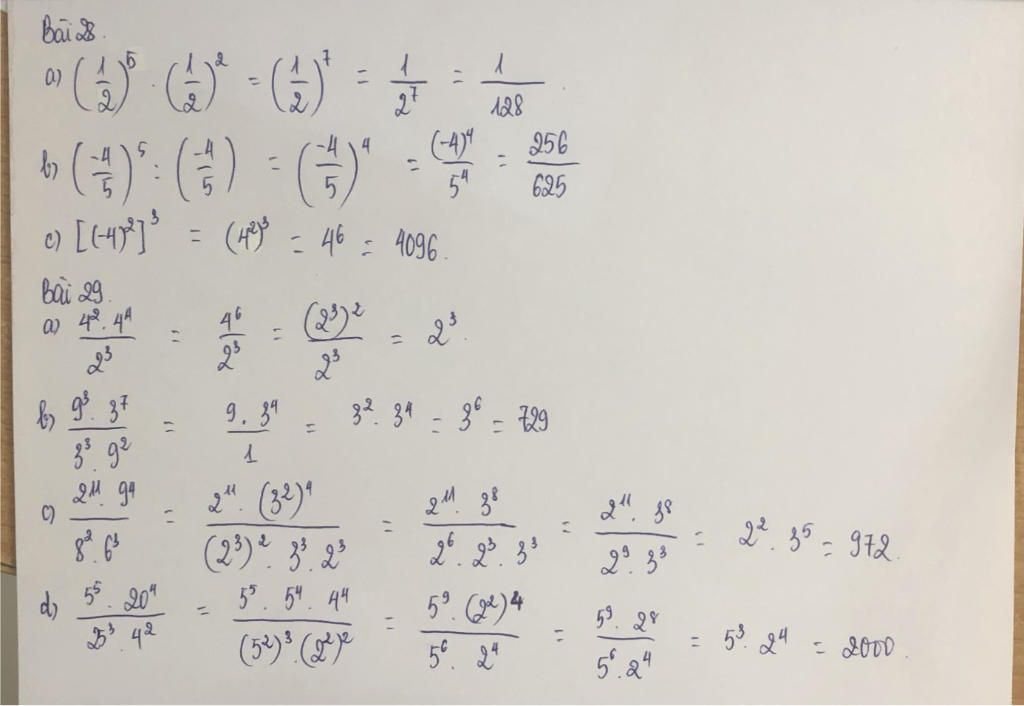 Bài 28.
a) (1/2)^5 . (1/2)^2 = (1/2)^7 = 1/2^7 = 1/128.
b) (-4/5)^5 : (-4/5) = (-4/5)^4 = (-4)^4/5^4 = 256/625
c) [(-4)^2]^3 = (4^2)^3 = 4^6 = 4096.
Bài 29.
a) 4^2 . 4^4 / 2^3 = 4^6 / 2^3 = (2^3)^2 / 2^3 = 2^3.
b) 9^3 . 3^7 / 3^3 . 9^2 = 9 . 3^4 / 1 = 3^2 . 3^4 = 3^6 = 729
c) 2^11 . 9^4 / 8^2 . 6^3 = 2^11 . (3^2)^4 / (2^3)^2 . 3^3 . 2^3 = 2^11 . 3^8 / 2^6 . 2^3 . 3^3 = 2^11 . 3^8 / 2^9 . 3^3 = 2^2 . 3^5 = 972.
d) 5^5 . 20^4 / 25^3 . 4^2 = 5^5 . 5^4 . 4^4 / (5^2)^3 . (2^2)^2 = 5^9 . (2^2)^4 / 5^6 . 2^4 = 5^9 . 2^8 / 5^6 . 2^4 = 5^3 . 2^4 = 2000.